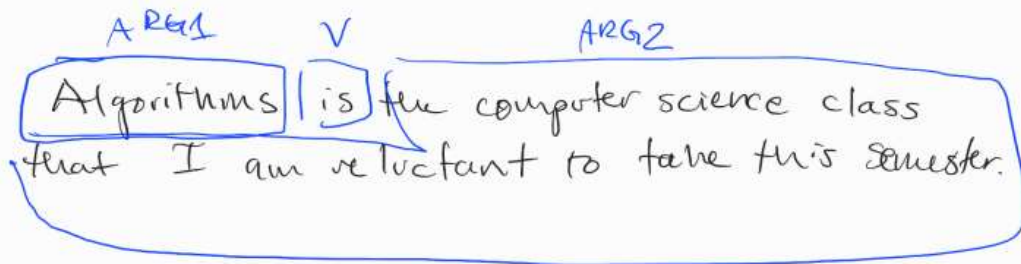 ARG1 V ARG2
Algorithms is the computer science class
that I am reluctant to take this semester.